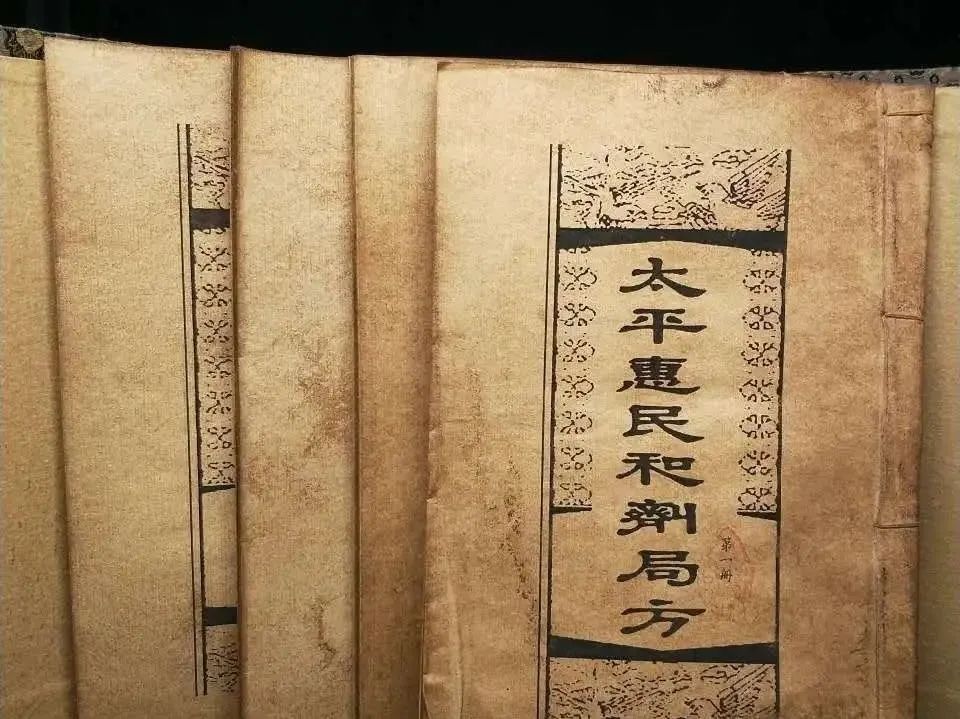 太平惠民和劑局方
第一册